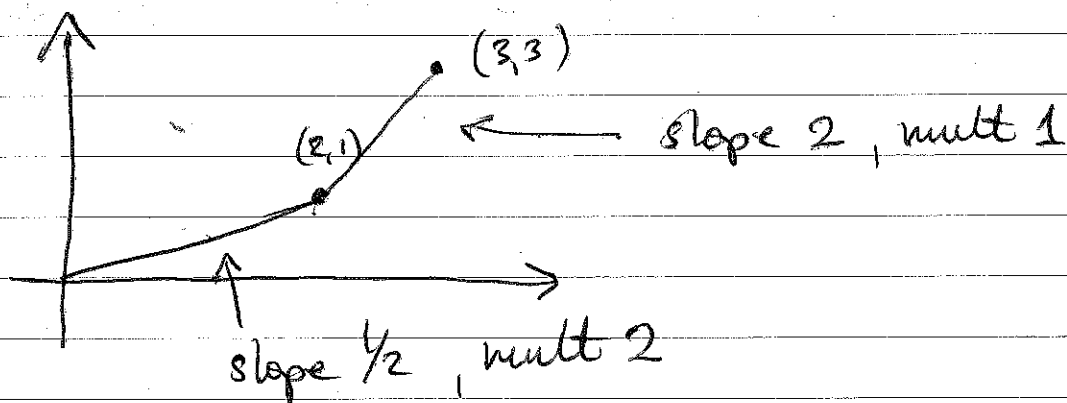 (3,3)
slope 2, mult 1
(2,1)
slope 1/2, mult 2